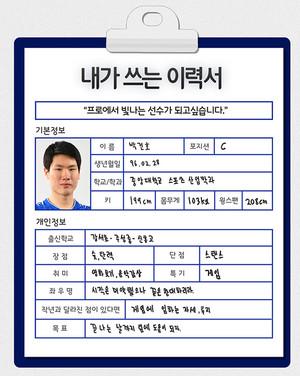 내가 쓰는 이력서
"프로에서 빛나는 선수가 되고싶습니다."
기본정보
이 름 박건호 포지션 C
생년월일 96. 02. 28
학교/학과 중앙대학교 스포츠 산업학과
키 199cm 몸무게 103kg 윙스팬 208cm
개인정보
출신학교
장 점 슛, 탄력 단 점 스텐스
취 미 영화보기, 음악감상 특 기 게임
좌 우 명 시작은 미약했으나 끝은 창대하리라
작년과 달라진 점이 있다면 게임에 임하는 자세, 유지
목 표 끝나는 날까지 팀에 도움이 되자.